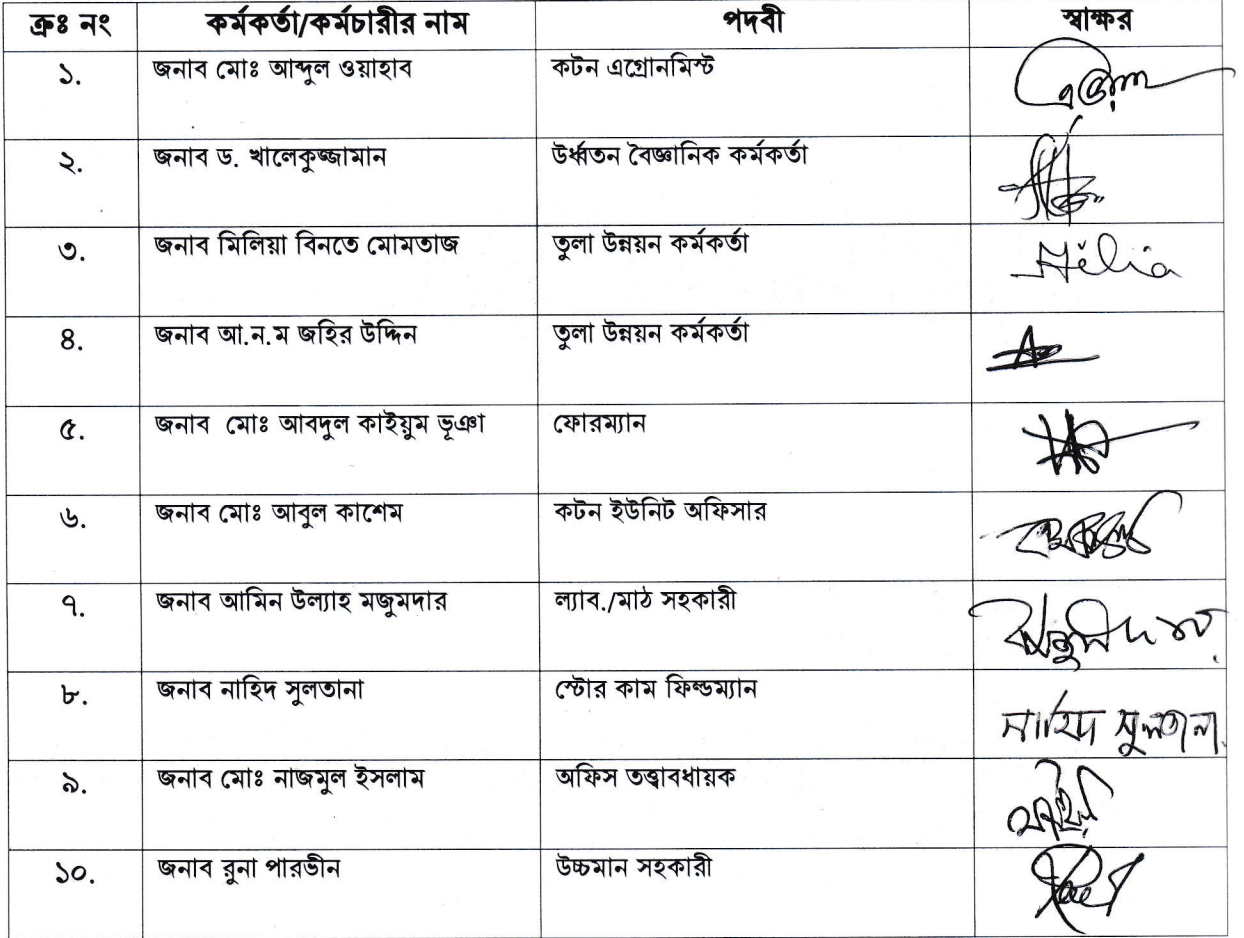 ক্রঃ নং কর্মকর্তা/কর্মচারীর নাম পদবী স্বাক্ষর
১. জনাব মোঃ আব্দুল ওয়াহাব কটন এগ্রোনমিস্ট
২. জনাব ড. খালেকুজ্জামান উর্ধ্বতন বৈজ্ঞানিক কর্মকর্তা
৩. জনাব মিলিয়া বিনতে মোমতাজ তুলা উন্নয়ন কর্মকর্তা Milia
৪. জনাব আ.ন.ম জহির উদ্দিন তুলা উন্নয়ন কর্মকর্তা
৫. জনাব মোঃ আবদুল কাইয়ুম ভূঞা ফোরম্যান
৬. জনাব মোঃ আবুল কাশেম কটন ইউনিট অফিসার
৭. জনাব আমিন উল্যাহ মজুমদার ল্যাব./মাঠ সহকারী
৮. জনাব নাহিদ সুলতানা স্টোর কাম ফিল্ডম্যান নাহিদ সুলতানা
৯. জনাব মোঃ নাজমুল ইসলাম অফিস তত্ত্বাবধায়ক
১০. জনাব রুনা পারভীন উচ্চমান সহকারী